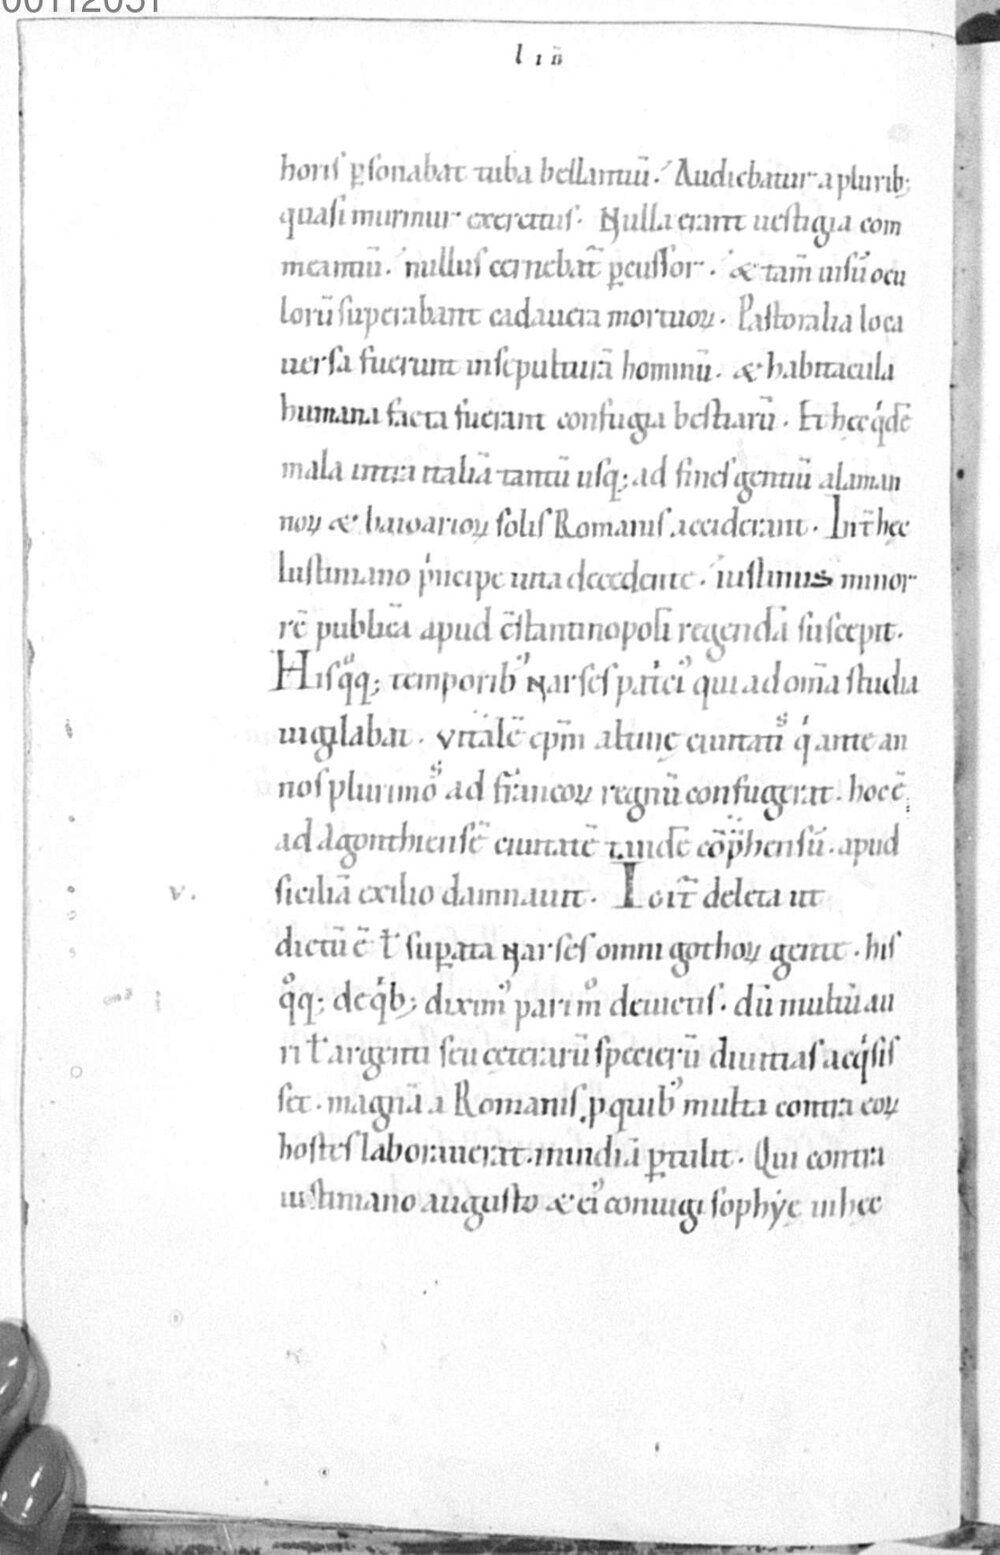 00112051
l i ñ
horiſ ꝑſonabat tuba bellantiū. Audiebatur a plurib;
quaſi murmur exercituſ. Nulla erant ueſtigia com
meantiū. nulluſ cernebat̄ ꝑcuſſor. & tam̄ uiſū ocu
lorū ſuperabant cadauera mortuoꝝ. Paſtoralia loca
uerſa fuerunt in ſepulturā hominū. & habitacula
humana facta fuerant confugia beſtiarū. Et hęc qͥdē
mala intra italiā tantū uſq; ad fineſ gentiū alaman
noꝝ & baioarioꝝ ſoliſ Romaniſ acciderant. Int̄ hęc
Iuſtiniano pͥncipe uita decedente. iuſtinus minor
rē publicā apud c̄ſtantinopolī regendā ſuſcepit.
Hiſ qͦq; temporibꝰ Narſeſ patͥciꝰ qui ad om̄a ſtudia
uigilabat. vitalē ep̄m altinę ciuitatiˢ qͥ ante an
noſ plurimoˢ ad fᵃncoꝝ regnū confugerat. hoc ē;
ad Agonthienſē ciuitatē tandē cōp̈henſū. apud
v. ſiciliā exilio damnauit. Igit̄ deleta ut
dictū ē ł ſuꝑata Narſeſ omni gothoꝝ gente. hiſ
qͦq; de qͥb; diximꝰ pari mͦ deuictiſ. dū multū au
ri ł argenti ſeu ceterarū ſpecierū diuitiaſ acqͥſiſ
ſet. magnā a Romaniſ, p quibꝰ multa contra eoꝝ
hoſteſ laborauerat. inuidiā ꝑtulit. Qui contra
iuſtiniano auguſto & eiꝰ coniugi ſophẏę in hęc